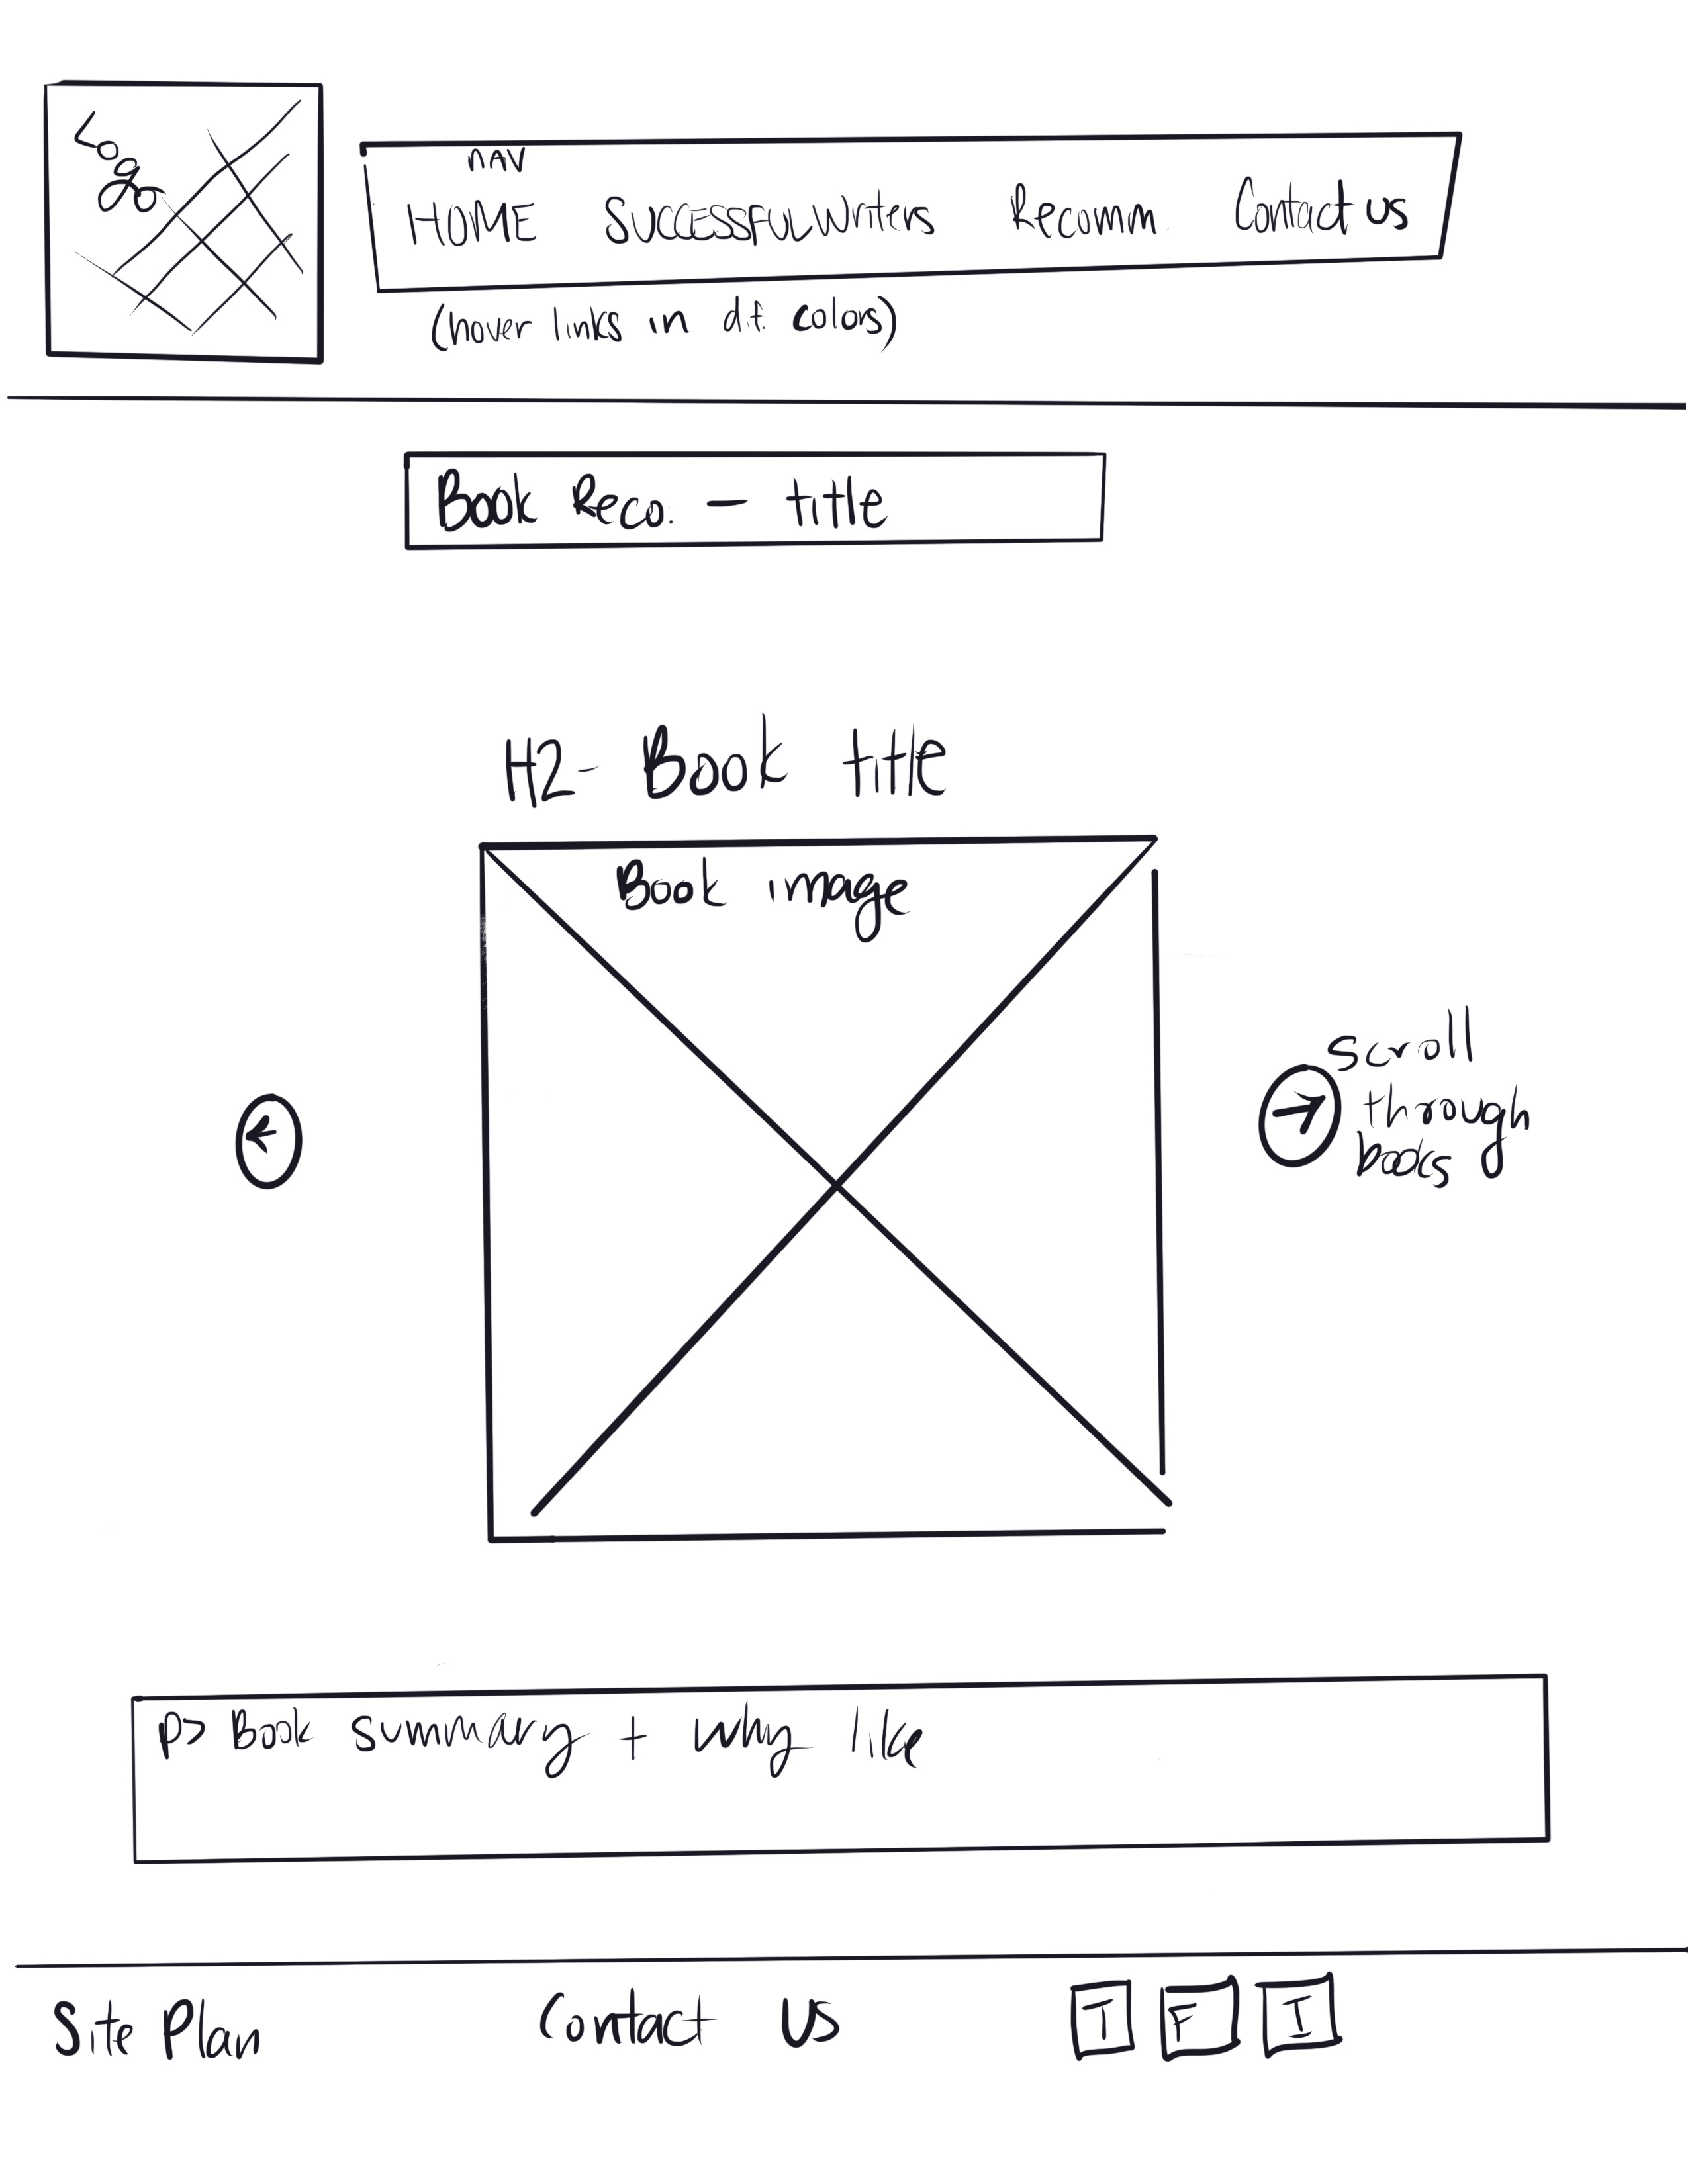 Logo
NAV
HOME Successful Writers Recomm. Contact us
(hover links in dif. colors)
Book Reco. — title
H2- Book title
Book image
scroll
through
books
P> Book summary + why like
Site Plan Contact Us T F I